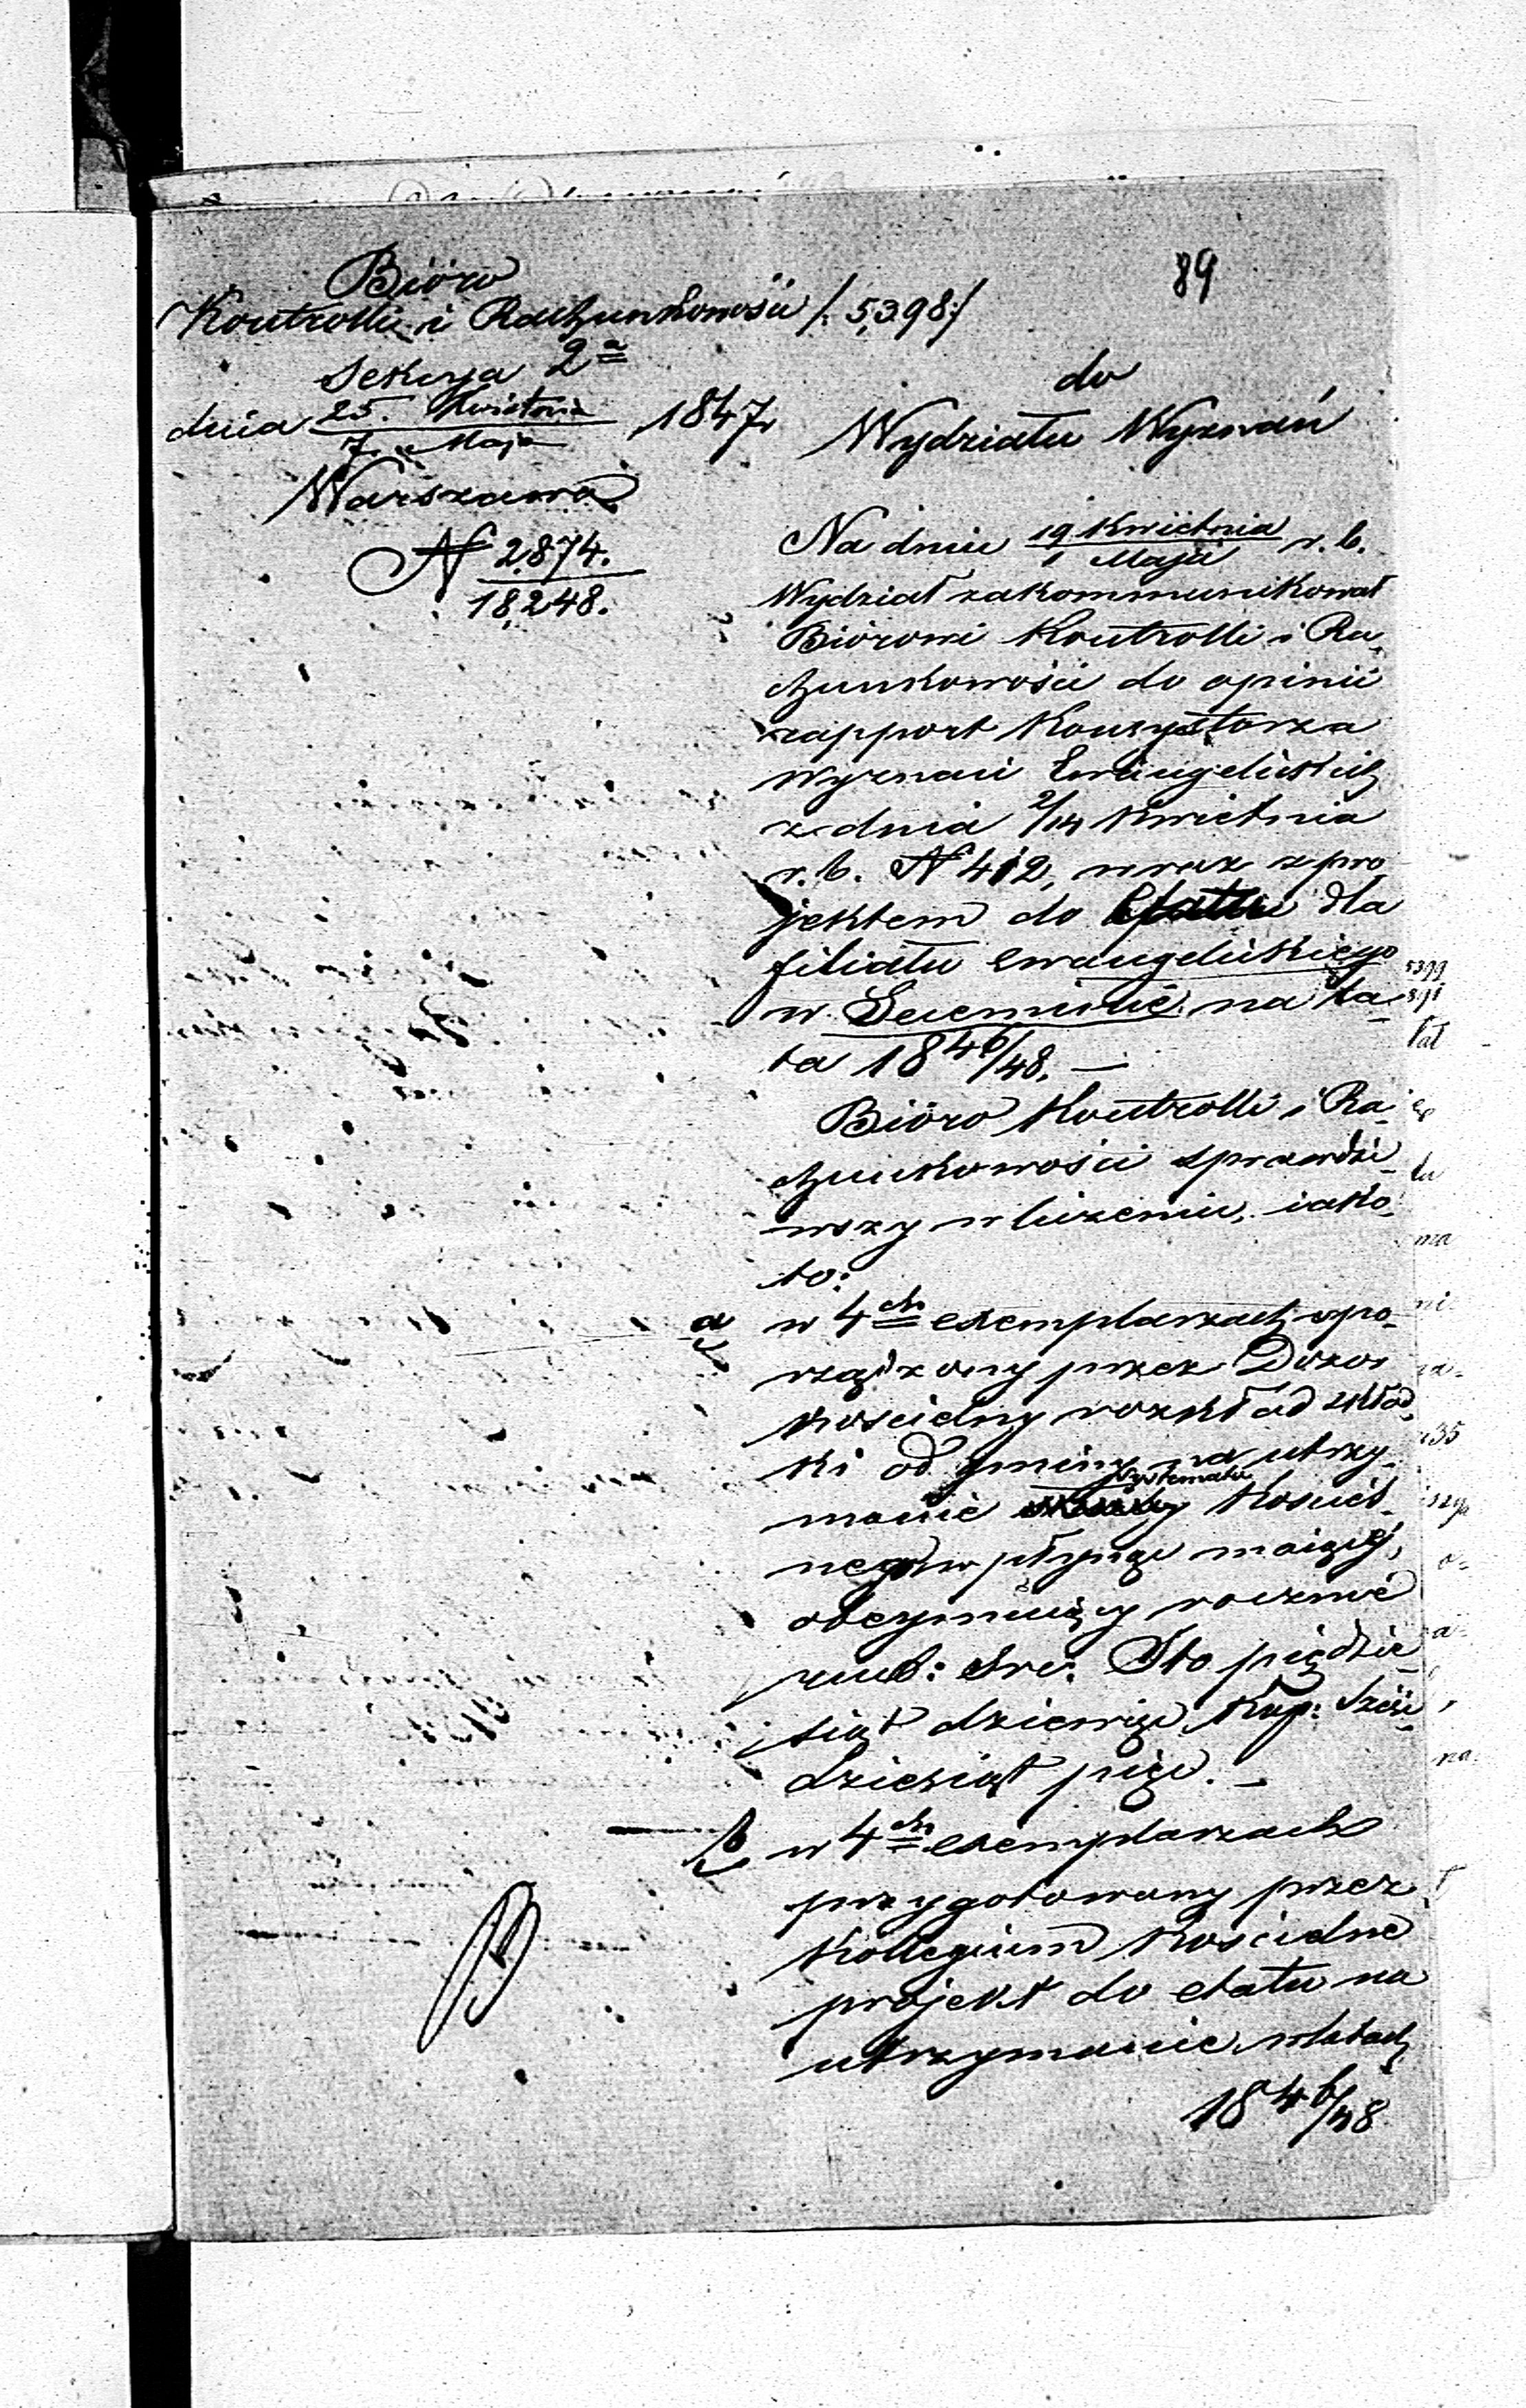 89
Bióro
Kontrolli i Rachunkowości /: 5,398 :/
Sekcya 2a
dnia 25. Kwietnia / 7. Maja 1847r
Warszawa
N 2,874. / 18,248.
do
Wydziału Wyznań
Na dniu 19 Kwietnia / 1 Maja r. b.
Wydział zakommunikował
Biórowi Kontrolli i Ra-
chunkowości do opinii
rapport Konsystorza
Wyznań Ewangelickich
z dnia 2/14 Kwietnia
r. b. N 412, wraz z pro-
jektem do etatu dla
filiału ewangelickiego
w na la-
ta 1846/48. —
Bióro Kontrolli i Ra-
chunkowości sprawdzi-
wszy w liczeniu, iako-
to:
a w 4ch exemplarzach spo-
rządzony przez Dozór
Kościelny rozkład składki
ki od gminy na utrzy-
manie systematu Kościel-
nego wpłynąć maiącej,
obeymuiący rocznie
rub: sre: Sto pięćdzie-
siąt dziewięć kop: sześć-
dziesiąt pięć. —
b w 4ch exemplarzach
przygotowany przez
Kollegium Kościelne
projekt do etatu na
utrzymanie w latach
1846/48